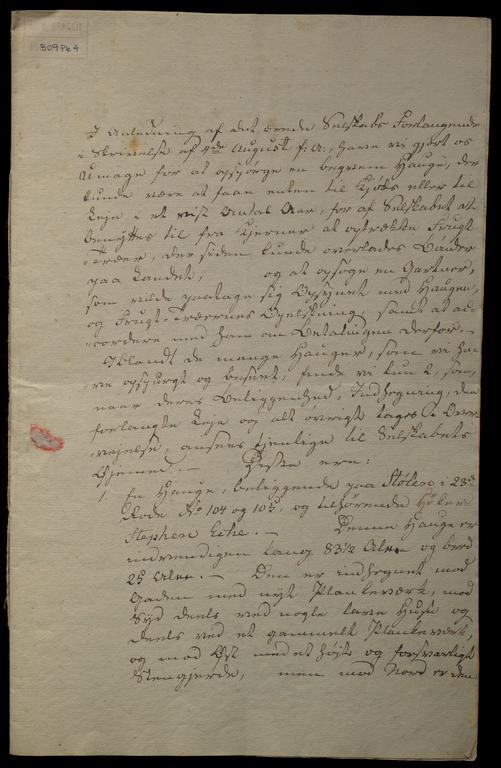 509 Pk 4
I Anledning af det ærede Selskabs Forlangende
i Skrivelse af 4de August f: A:, have vi gjort os
Umage for at opspørge en beqvem Hauge, der
kunde være at faae enten til Kjøbs eller til
Leje i et vist Antal Aar, for af Selskabet at
benyttes til fra Kjerner at optrække Frugt-
Træer, der siden kunde overlades Bønder
paa Landet, og at opsøge en Gartner,
som vilde paatage sig Opsynet med Haugen,
og Frugt-Træernes Opelskning samt at ac-
cordere med ham om Betalingen derfor. –
Iblandt de mange Hauger, som vi ha-
ve opspurgt og beseet, finde vi kun 2, som,
naar deres Beliggenhed, Indhegning, den
forlangte Leje og alt øvrigt tages i Over-
vejelse, ansees tjenlige til Selskabets
Øjemed. – Disse ere:
1 En Hauge, beliggende paa Stølen i 23de
Rode No 104 og 105, og tilhørende
Stephen – Denne Hauge er
indvendigen lang 83 1/2 Alen og bred
25 Alen. – Den er indhegnet mod
Gaden med nyt Plankeværk, mod
Syd deels ved nogle lave Huse og
deels ved et gammelt Plankeværk,
og mod Øst med et højt og forsvarligt
Steengjerde, men mod Nord er den